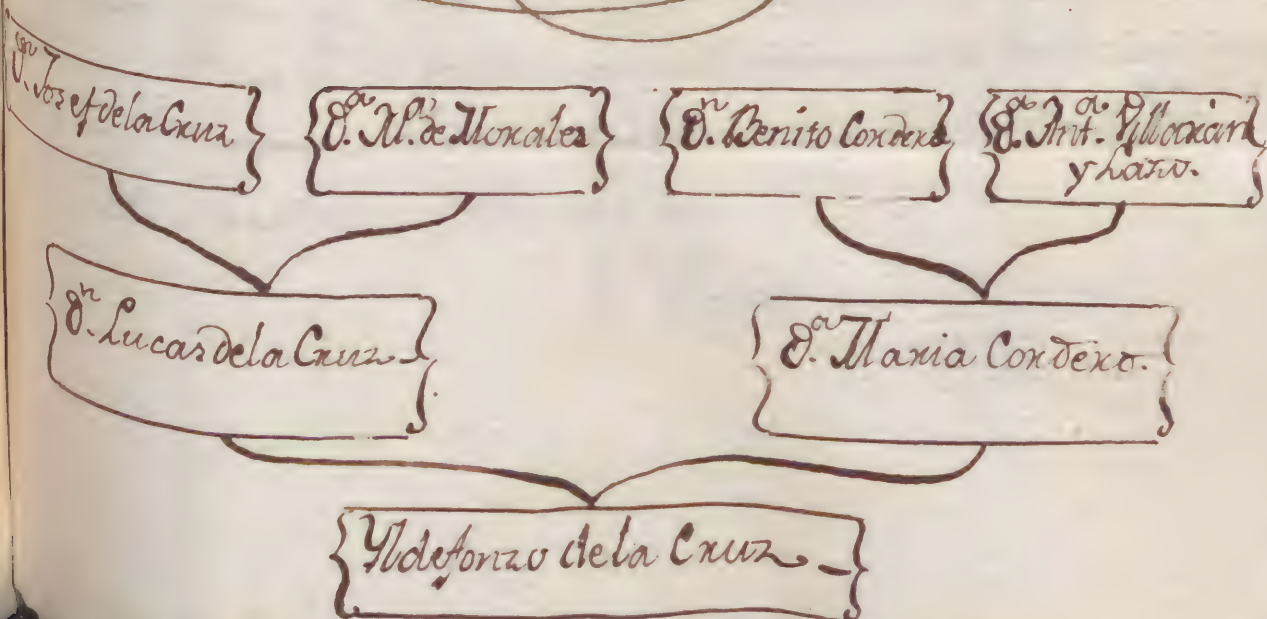 Dⁿ. Josef de la Cruz
Dᵃ. Mᵃ. de Morales
Dⁿ. Benito Cordero
Dᵃ. Antᵃ.
y Lazo.
Dⁿ. Lucas de la Cruz
Dᵃ. Maria Cordero.
Yldefonzo de la Cruz